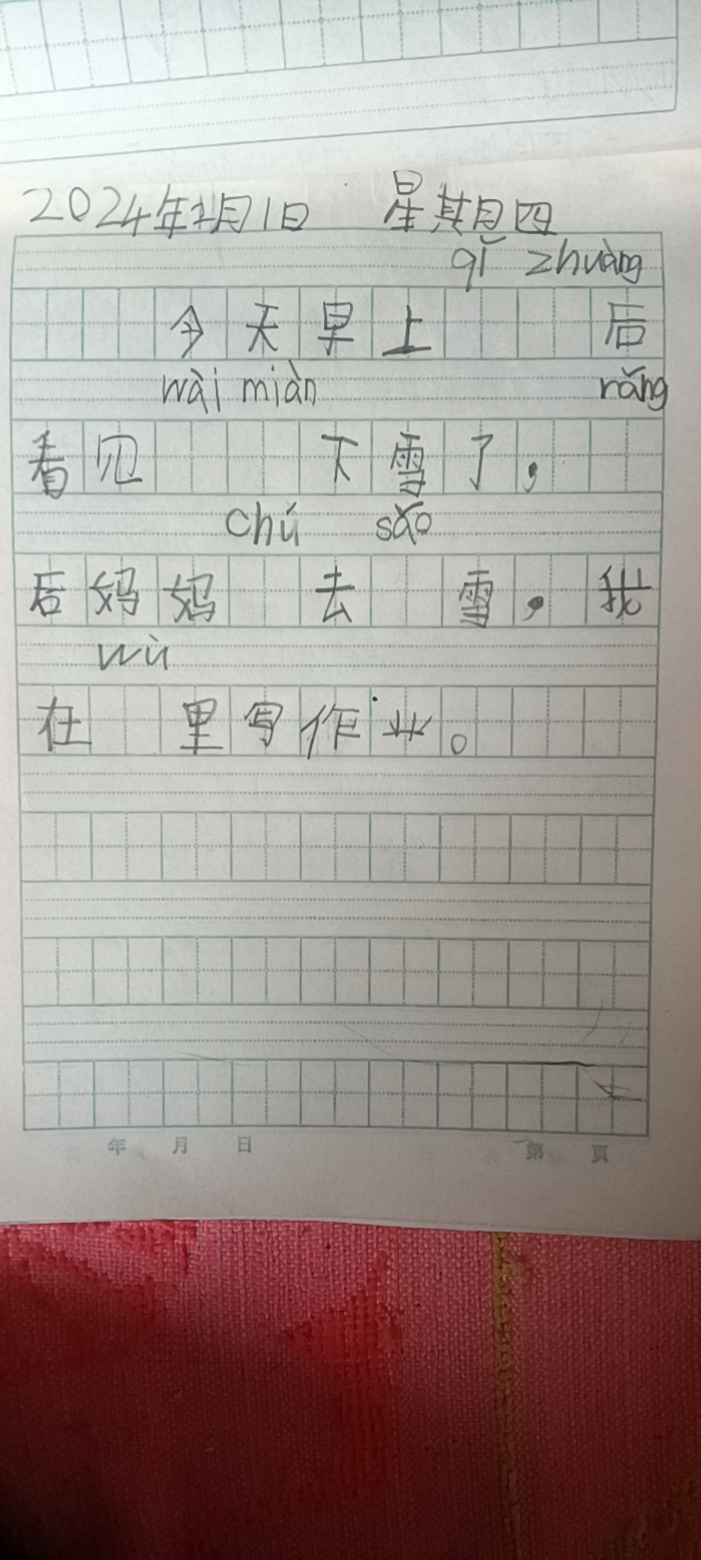 2024年2月1日 星期四
qǐ zhuàng
今天早上 后
wài miàn rǎng
看见 下雪了，
chú sǎo
后妈妈 去 雪，我
wù
在 里写作业。
年 月 日 第 页